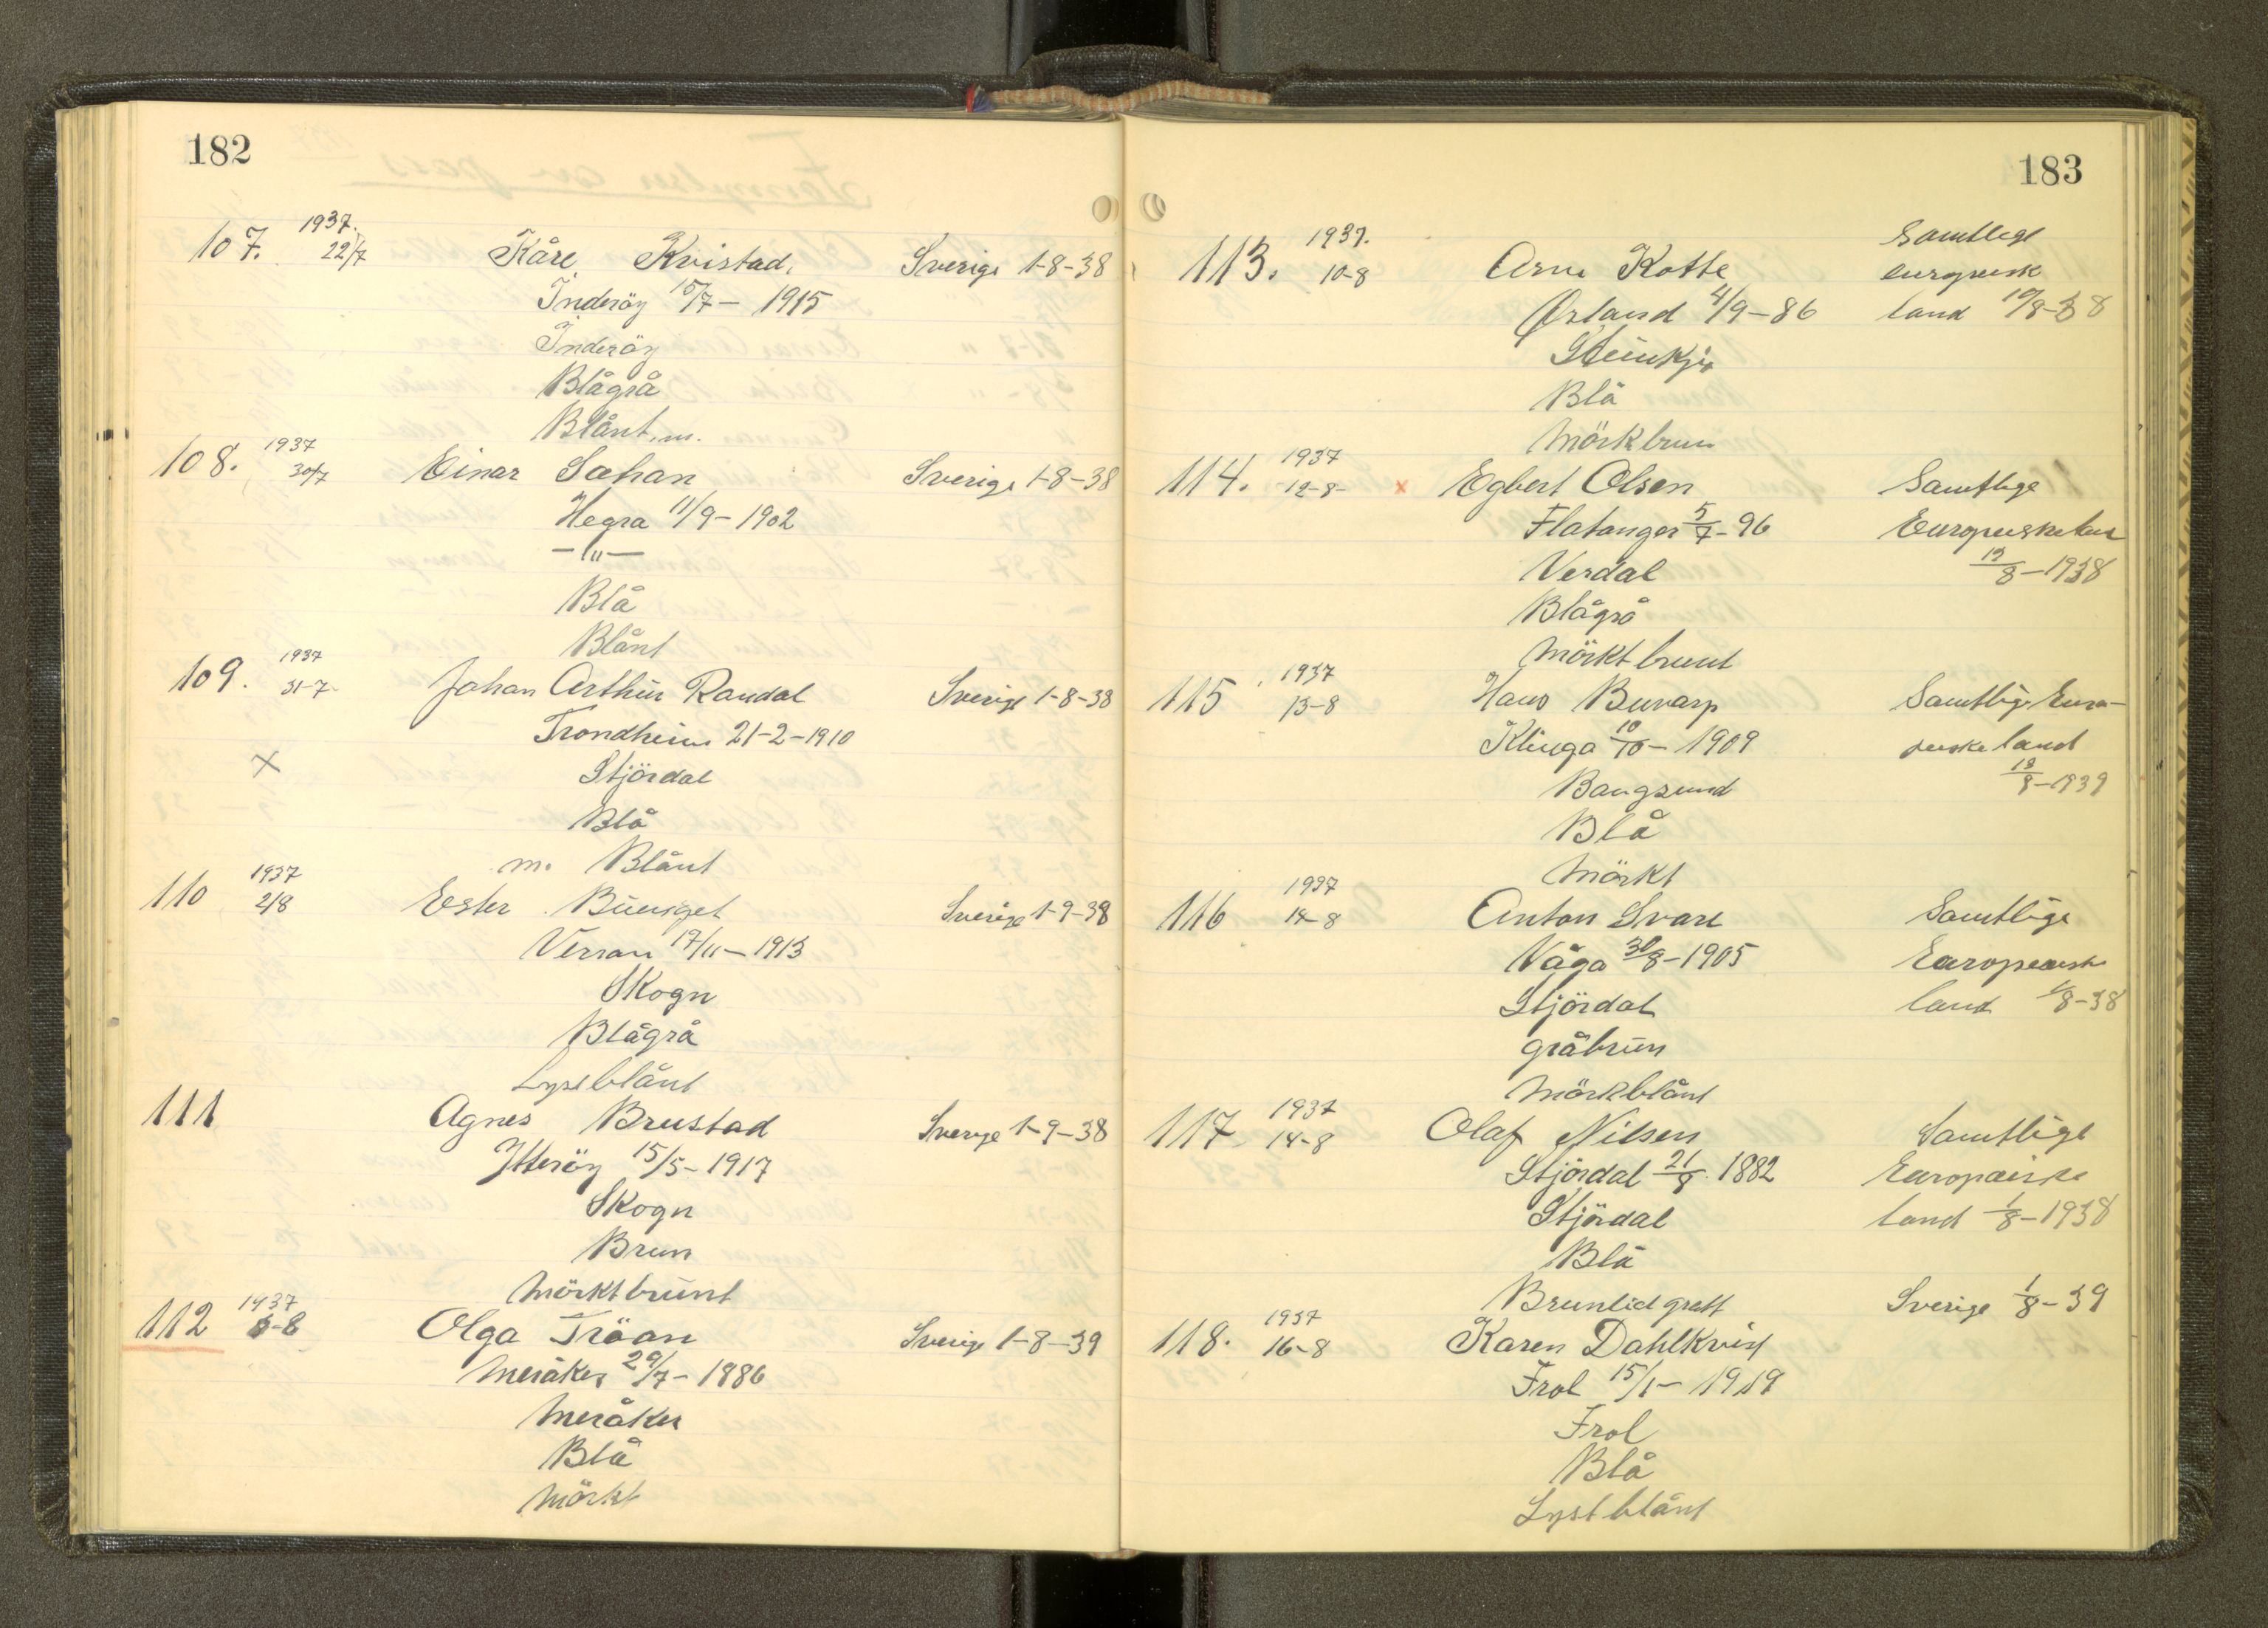 182
107. 1937. 22/7 Kåre Kvistad, Sverige 1-8-38
Inderöy 15/7 - 1915
Inderöy
Blågrå
Blånt, m.
108. 1937 30/7 Einar Sæhan Sverige 1-8-38
Hegra 11/9 - 1902
- " -
Blå
Blånt
109. 1937 31-7 Johan Arthur Randal Sverige 1-8-38
Trondheim 21-2-1910
Stjördal
Blå
m. Blånt
110 1937 2/8 Ester Sverige 1-9-38
Verran 17/11 - 1913
Skogn
Blågrå
Lyseblånt
111 Agnes Brustad Sverge 1-9-38
Ytteröy 15/5 - 1917
Skogn
Brun
Mörkt brunt
112 1937 6-8 Olga Tröan Sverige 1-8-39
Meråker 29/7 - 1886
Meråker
Blå
Mörkt
183
113. 1937. 10-8 Arne Kotte Samtlige
europeisk
Ørland 4/9 - 86 land 10/8-38
Steinkjer
Blå
Mörkbrun
114. 1937 12-8- x Egbert Olsen Samtlige
Flatanger 5/7 - 96 Europeiske
Verdal 8 - 1938
Blågrå
Mörkt brunt
115 1937 13-8 Hans Buvarp Samtlige Euro-
Klinga 10/10 - 1909 peiske land
Bangsund 1939
Blå
Mörkt
116 1937 14-8 Anton Svare Samtlige
Våga 30/8 - 1905 Europeiske
Stjördal land 8-38
gråbrun
Mörkblånt
117 1937 14-8 Olaf Nilsen Samtlige
Stjördal 21/8 1882 Europaiske
Stjördal land 1/8 - 1938
Blå
Brunlid grått Sverige 1/8 - 39
118. 1937 16-8 Karen Dahlkvist
Frol 15/1 - 1919
Frol
Blå
Lyst blånt